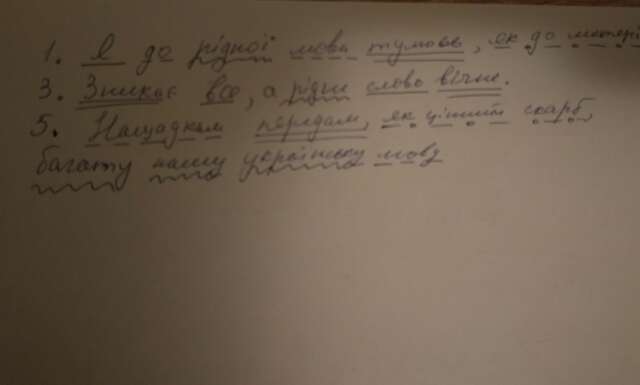 1. Я до рідної мови тулюсь, як до матері
3. Зникає все, а рідне слово вічне.
5. Нащадкам передам, як цінний скарб,
багату нашу українську мову